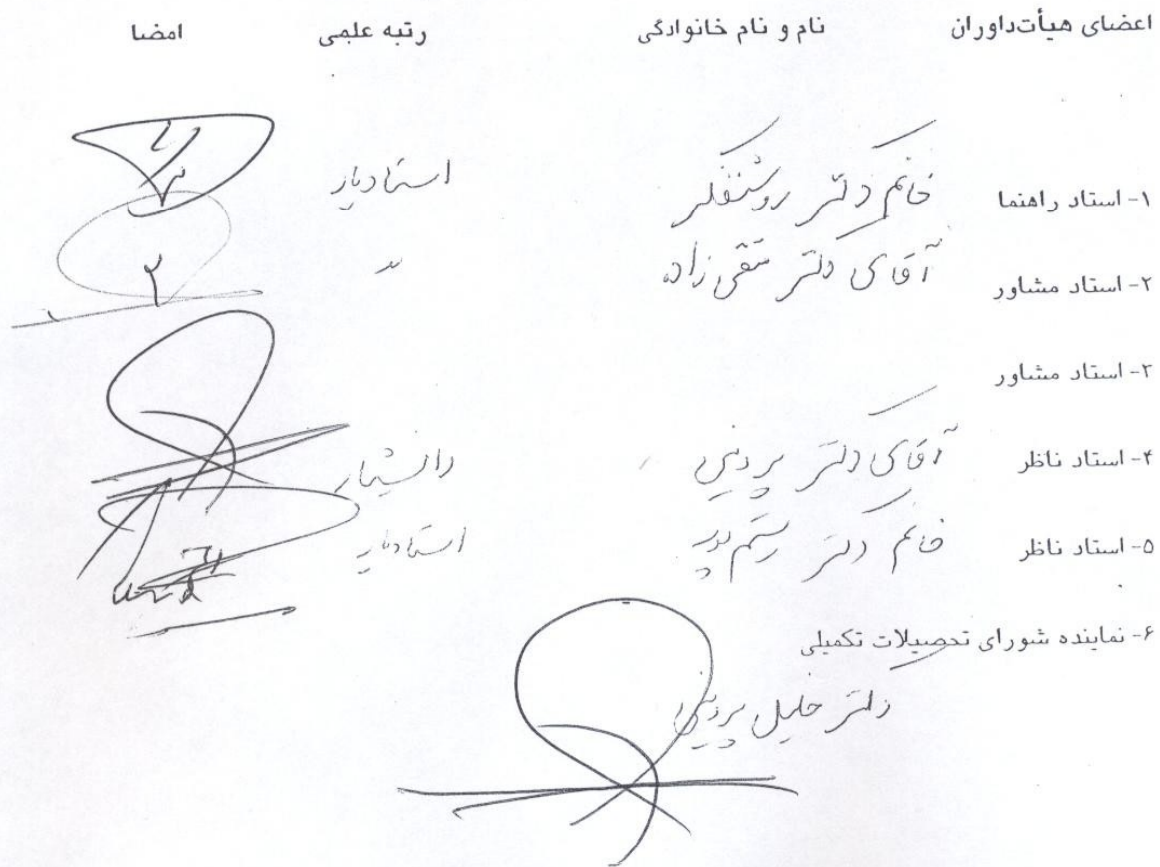 اعضای هیأت‌داوران نام و نام خانوادگی رتبه علمی امضا
۱- استاد راهنما خانم دکتر روشنفکر استادیار
۲- استاد مشاور آقای دکتر متقی زاده "
۳- استاد مشاور
۴- استاد ناظر آقای دکتر پروینی دانشیار
۵- استاد ناظر خانم دکتر رستم پور استادیار
۶- نماینده شورای تحصیلات تکمیلی
دکتر خلیل پروینی